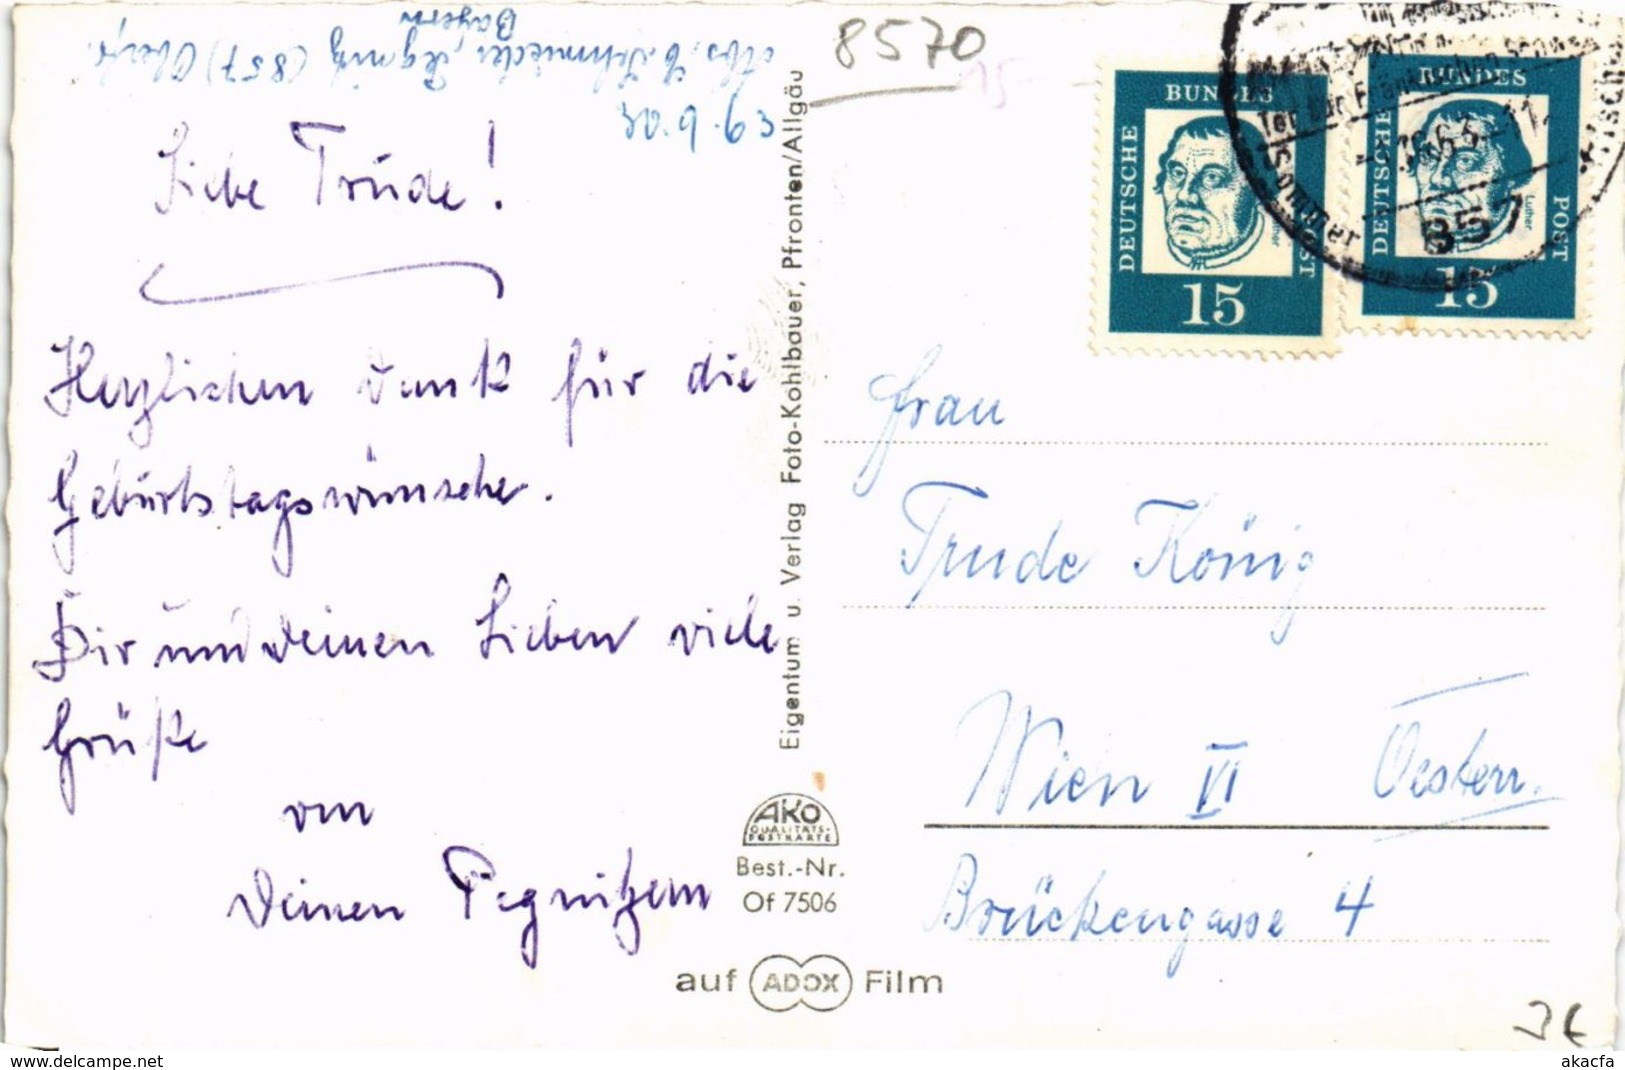 Abs. E. Schmiedel, Pegnitz (857) Oberfr.
Bayern
30.6.63
Liebe Trude!
Herzlichen Dank für die
Geburtstagswünsche.
Dir und Deinen Lieben viele
Grüße
von
Deinen Pegnitzern
Eigentum u. Verlag Foto-Kohlbauer, Pfronten/Allgäu
AKO
QUALITÄTS-
POSTKARTE
Best.-Nr.
Of 7506
auf ADOX Film
8570
15-
DEUTSCHE BUNDES POST
15
DEUTSCHE BUNDES POST
Luther
15
Tor zur Fränkischen Schweiz
Sommer
857
Frau
Trude König
Wien VI Oesterr.
Brückengasse 4
3€
akacfa
www.delcampe.net